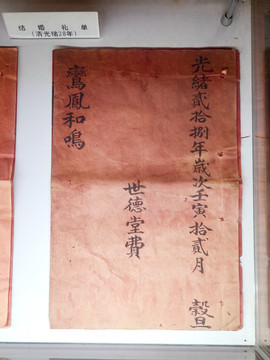 结婚礼单
(清光绪28年)
光緒貳拾捌年歲次壬寅拾貳月 穀旦
世德堂費
鸞鳳和鳴